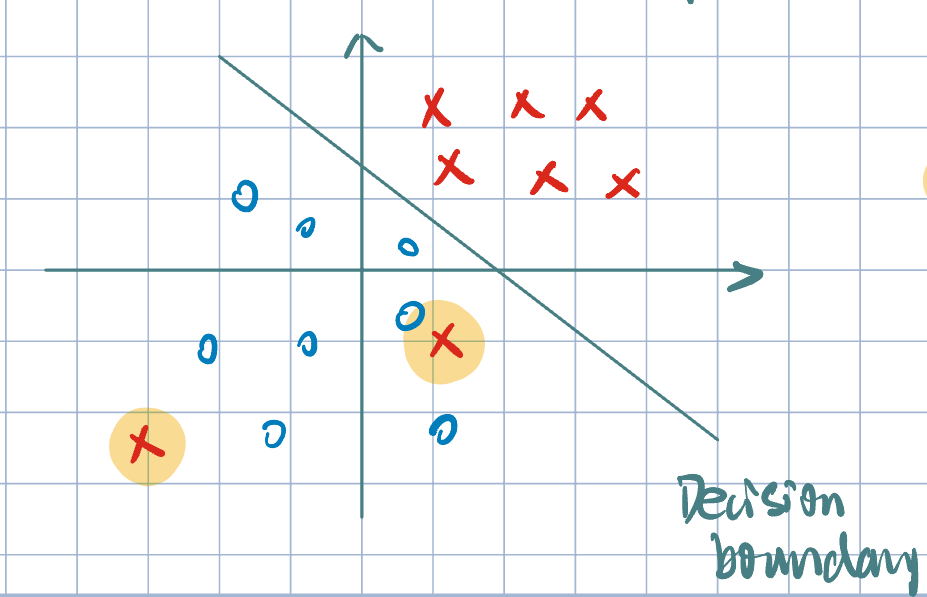 Decision
boundary